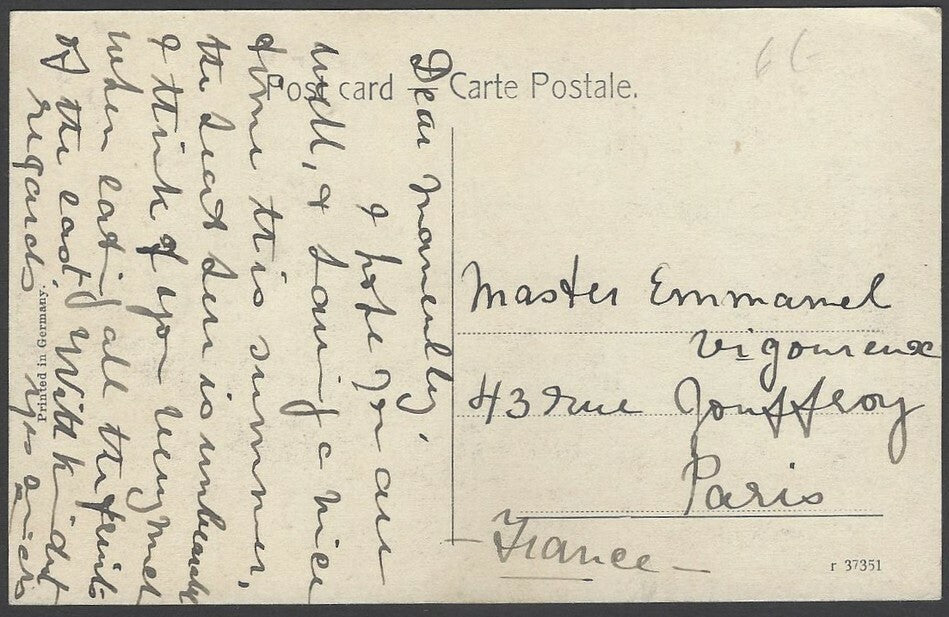 Post card — Carte Postale.
Dear
I hope you are
well, & having a nice
time this summer,
the heat here is unbearable
I think of you very much
when eating all the fruits
of the east, With kindest
regards
Master Emmanuel
Vigoureux
43 rue Jouffroy
Paris
France
Printed in Germany.
r 37351